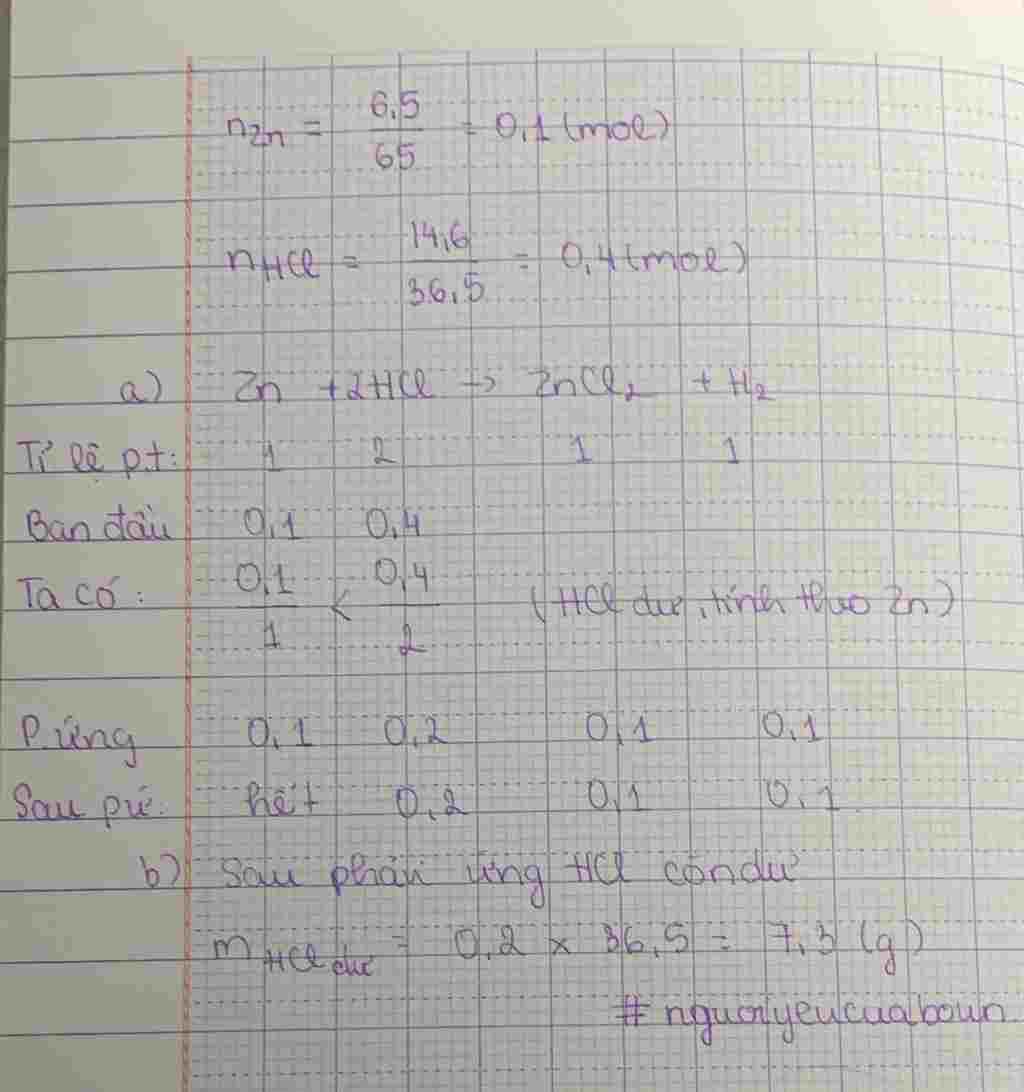 nZn = 6,5/65 = 0,1 (mol)
nHCl = 14,6/36,5 = 0,4 (mol)
a) Zn + 2HCl → ZnCl₂ + H₂
Tỉ lệ pt: 1 2 1 1
Ban đầu 0,1 0,4
Ta có: 0,1/1 < 0,4/2 (HCl dư, tính theo Zn)
P.ứng 0,1 0,2 0,1 0,1
Sau pứ: hết 0,2 0,1 0,1
b) Sau phản ứng HCl còn dư
mHCl dư = 0,2 x 36,5 = 7,3 (g)
#nguoiyeucuaboun